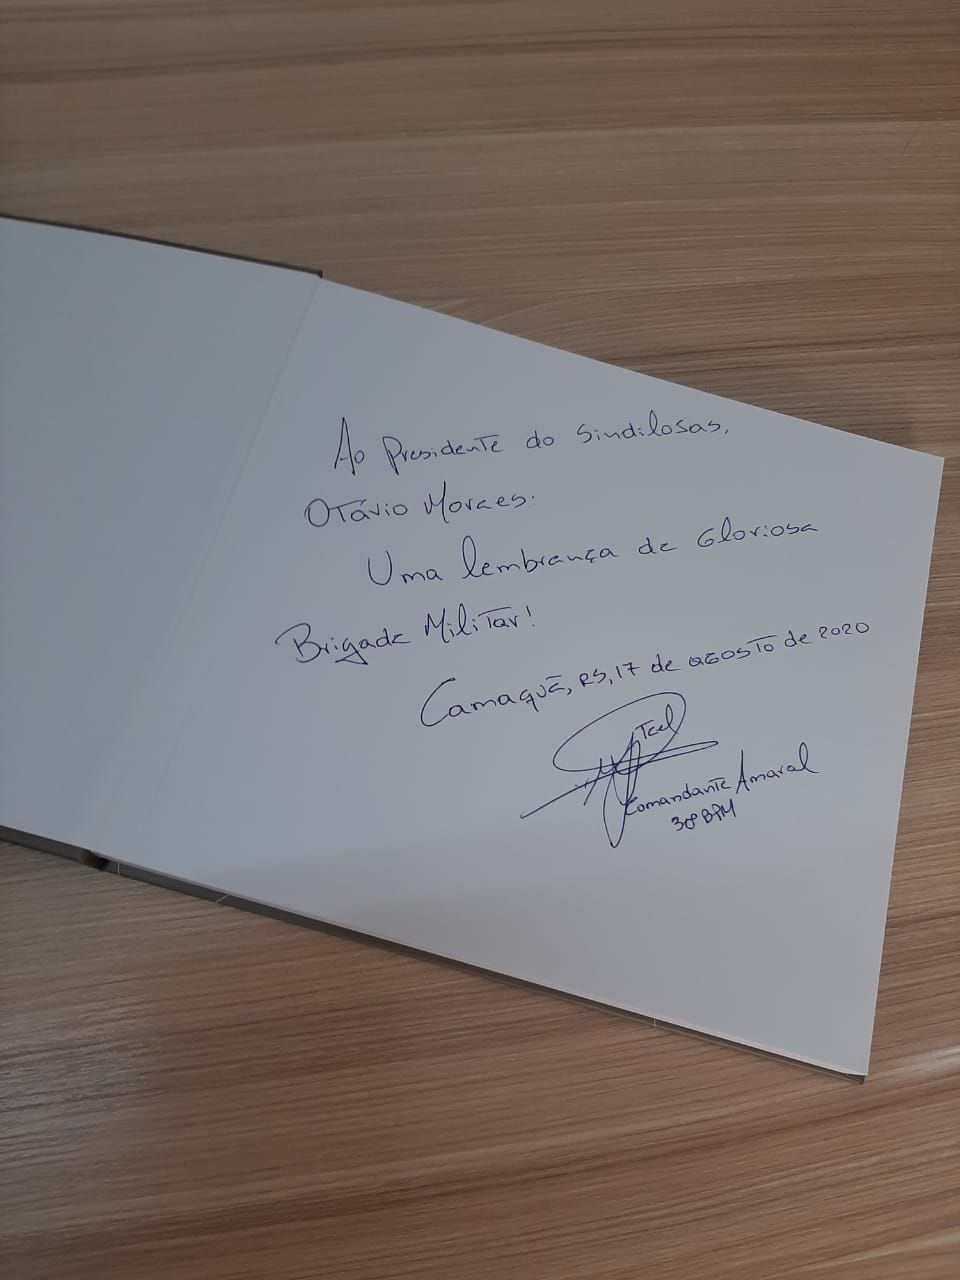 Ao Presidente do Sindilojas,
Otávio Moraes:
Uma lembrança da Gloriosa
Brigada Militar!
Camaquã, RS, 17 de agosto de 2020
Tcel
Comandante Amaral
30º BPM